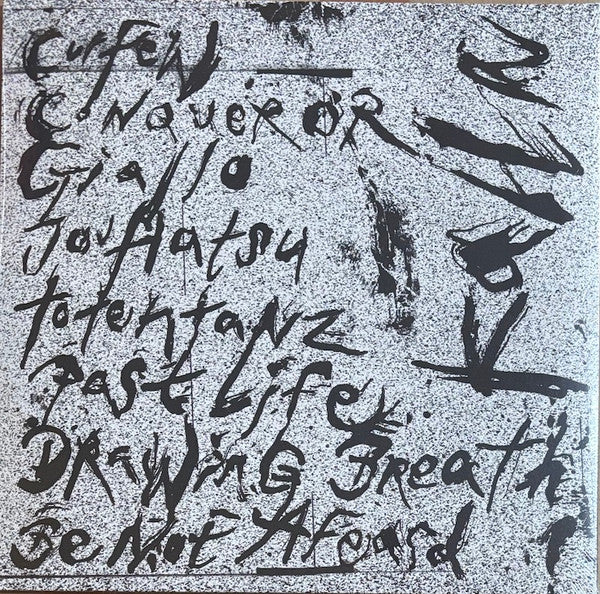 Curfew
CONQUEROR
Giallo
Jouhatsu
totentaNz
Past Life
DRAWiNG Breath
Be Not Afeard
KaHN